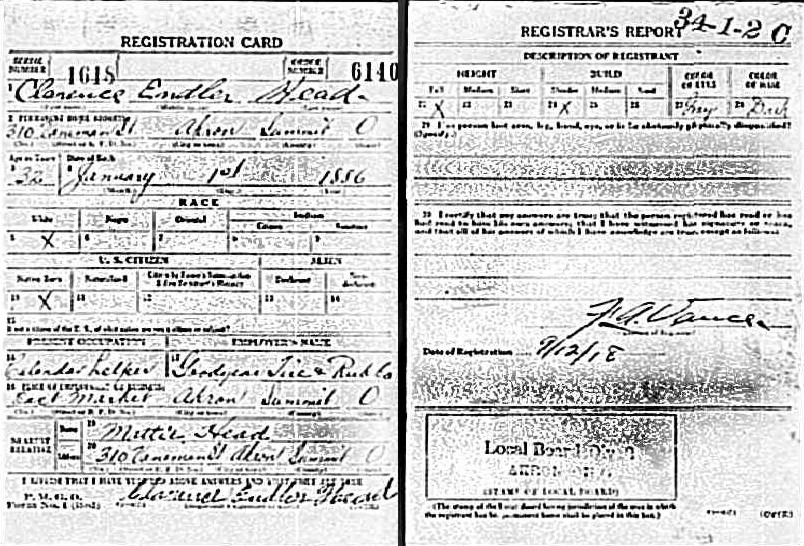 REGISTRATION CARD
SERIAL NUMBER 1618 ORDER NUMBER 6140
1 Clarence Endler Head
2 PERMANENT HOME ADDRESS
310 St Akron Summit O
Age in Years Date of Birth
32 January 1st 1886
RACE
White Negro Oriental Indian
Citizen
5 X 6 7 8 9
U. S. CITIZEN ALIEN
Native Born Naturalized
10 X 11 12 13 14
15
PRESENT OCCUPATION EMPLOYER'S NAME
Calender helper Goodyear Tire & Rub Co
PLACE OF EMPLOYMENT OR BUSINESS
East Market Akron Summit O
NEAREST RELATIVE
Name 19 Mettie Head
Address 20 310 St Akron Summit O
I AFFIRM THAT I HAVE VERIFIED ABOVE ANSWERS AND THAT THEY ARE TRUE
P. M. G. O.
Form No. 1 (Red) Clarence Endler Head
34-1-2 C
REGISTRAR'S REPORT
DESCRIPTION OF REGISTRANT
HEIGHT BUILD COLOR OF EYES COLOR OF HAIR
Tall Medium Short Slender Medium Stout
21 X 22 23 24 X 25 26 27 Grey 28 Dark
29 Has person lost arm, leg, hand, eye, or is he obviously physically disqualified?
(Specify.)
30 I certify that my answers are true; that the person registered has read or has
had read to him his own answers; that I have witnessed his signature or mark,
and that all of his answers of which I have knowledge are true, except as follows:
Date of Registration 9/12/18
Local Board
AKRON
(STAMP OF LOCAL BOARD)
(The stamp of the Local Board having jurisdiction of the area in which
the registrant has his permanent home shall be placed in this box.)
(OVER)